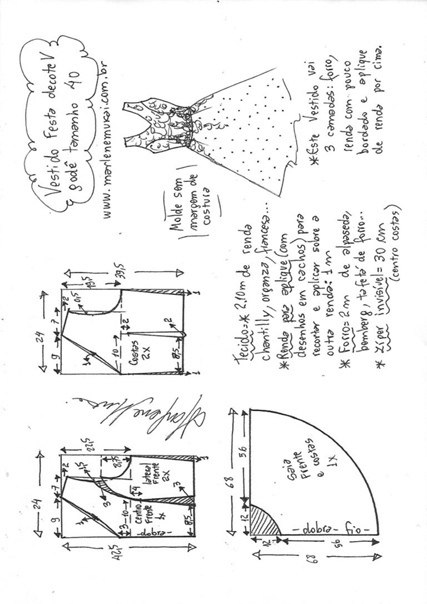 Vestido Festa decote V
godê tamanho 40
www.marlenemukai.com.br
Molde sem
margem de
costura
*Este Vestido vai
3 camadas: forro,
renda com pouco
bordado e aplique
de renda por cima.
Tecido=* 2,10m de renda
chantilly, organza, francesa...
*Renda para aplique (com
desenhos em cachos) para
recortar e aplicar sobre a
outra renda: 1m
*Forro=2m de alpaseda,
bemberg, tafetá de forro...
*Zíper invisível=30cm
(centro costas)
24
9
7
2
0,5
22,5
39,5
3
10
2
Costas
2x
2
8,5
1
24
9
7
2
1,5
22,5
8,5
3
3
4
lateral
Frente
2x
3
3-10
centro
Frente
1x
-dobra-
3
8,5
42,5
68
56
12
Saia
Frente
e costas
1x
-dobra-
fio
12
56
68